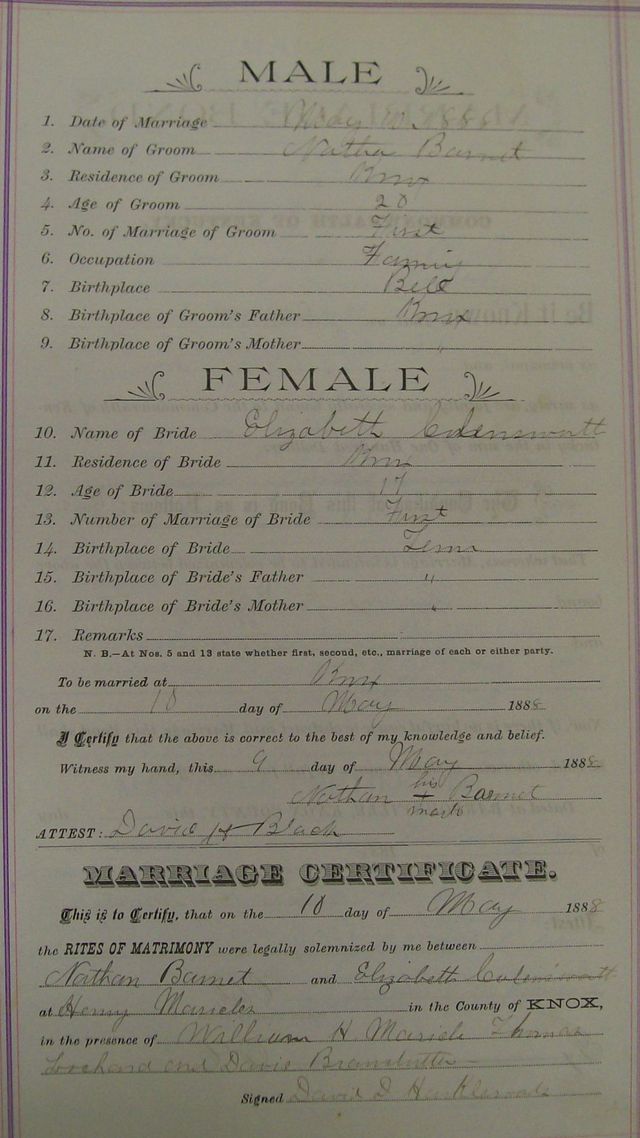 MALE
1. Date of Marriage May 10 1888
2. Name of Groom Nathan Barnet
3. Residence of Groom Knox
4. Age of Groom 20
5. No. of Marriage of Groom First
6. Occupation Farming
7. Birthplace Bell
8. Birthplace of Groom's Father Knox
9. Birthplace of Groom's Mother "
FEMALE
10. Name of Bride Elizabeth
11. Residence of Bride Knox
12. Age of Bride 17
13. Number of Marriage of Bride First
14. Birthplace of Bride Tenn
15. Birthplace of Bride's Father "
16. Birthplace of Bride's Mother "
17. Remarks
N. B.—At Nos. 5 and 13 state whether first, second, etc., marriage of each or either party.
To be married at Knox
on the 10 day of May 1888
I Certify that the above is correct to the best of my knowledge and belief.
Witness my hand, this 9 day of May 1888
Nathan his + mark Barnet
ATTEST: David H Black
MARRIAGE CERTIFICATE.
This is to Certify, that on the 10 day of May 1888
the RITES OF MATRIMONY were legally solemnized by me between
Nathan Barnet and Elizabeth
at Henry in the County of KNOX,
in the presence of William H Thomas
and
Signed David D